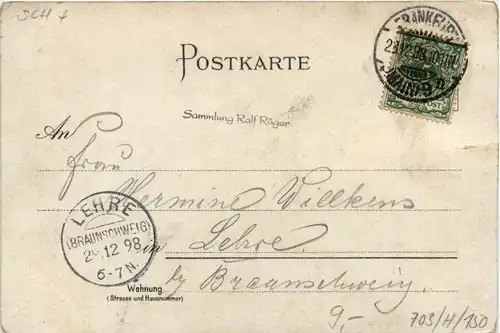 SCH
FRANKFURT
POSTKARTE
Sammlung Ralf Räger
An
Frau
Hermine Willkens
in Lehre
b/ Braunschweig
LEHRE
(BRAUNSCHWEIG)
12 98
6-7N.
Wohnung
(Strasse und Hausnummer)
9,-
703/H/150